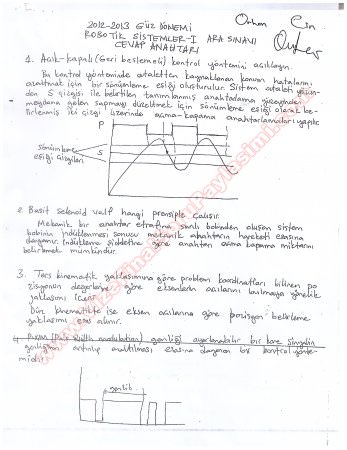 2012-2013 GÜZ DÖNEMİ
ROBOTİK SİSTEMLER-I ARA SINAVI
CEVAP ANAHTARI
1. Açık-kapalı (Geri beslemeli) kontrol yöntemini açıklayın.
Bu kontrol yönteminde ataletten kaynaklanan konum hatalarını
azaltmak için bir sönümleme eşiği oluşturulur. Sistem ataleti
dan S çizgisi ile belirtilen tanımlanmış anahtarlama
meydana gelen sapmayı düzeltmek için sönümleme eşiği olarak be-
lirlenmiş iki çizgi üzerinde açma-kapama anahtarlamaları yapılır.
P
S
sönümleme
eşiği çizgileri
2. Basit selenoid valf hangi prensiple çalışır.
Mekanik bir anahtar etrafına sarılı bobinden oluşan sistem
bobinin indüklenmesi sonucu mekanik anahtarın hareketi esasına
dayanır. İndükleme şiddetine göre anahtarı açma kapama miktarını
belirlemek mümkündür.
3. Ters kinematik yaklaşımına göre problem koordinatları bilinen po
zisyonun değerlerine göre eksenlerin açılarını bulmaya yönelik
yaklaşımı içerir.
Düz kinematikte ise eksen açılarına göre pozisyon belirleme
yaklaşımı esas alınır.
4. PWM (Puls width modulation) genliği ayarlanabilir bir kare sinyalin
genliğinin artırılıp azaltılması esasına dayanan bir kontrol yönte-
midir.
genlik